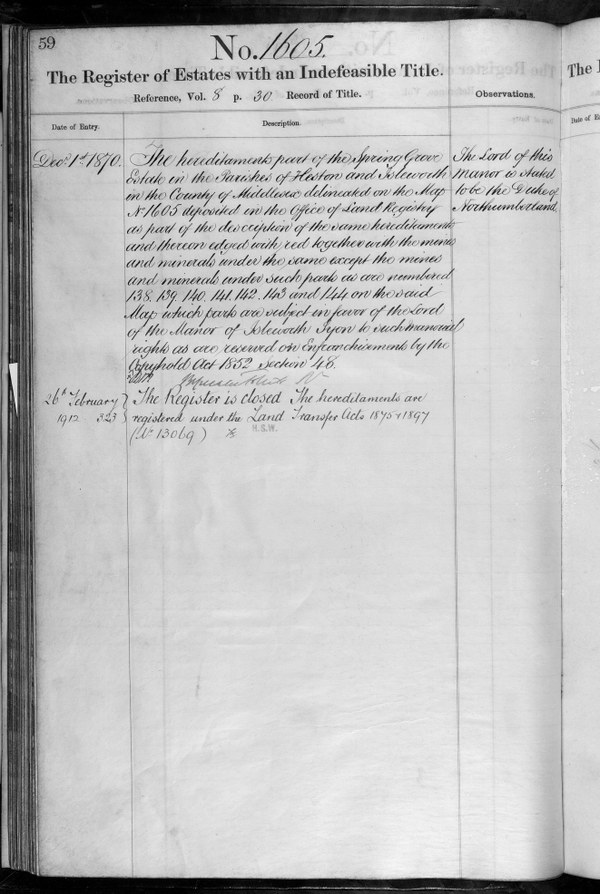 59
No. 1605.
The Register of Estates with an Indefeasible Title.
Reference, Vol. 8 p. 30 Record of Title.
Observations.
Date of Entry.
Description.
Decr 1st 1870.
The hereditaments part of the Spring Grove
Estate in the Parishes of Heston and Isleworth
in the County of Middlesex delineated on the Map
No 1605 deposited in the Office of Land Registry
as part of the description of the same hereditaments
and thereon edged with red together with the mines
and minerals under the same except the mines
and minerals under such parts as are numbered
138. 139. 140. 141. 142. 143 and 144 on the said
Map which parts are subject in favor of the Lord
of the Manor of Isleworth Syon to such manorial
rights as are reserved on Enfranchisement by the
Copyhold Act 1852 Section 48.
The Lord of this
Manor is stated
to be the Duke of
Northumberland.
26th February
1912 323
The Register is closed The hereditaments are
registered under the Land Transfer Acts 1875 & 1897
(No 13069)
H.S.W.
The
Date of E